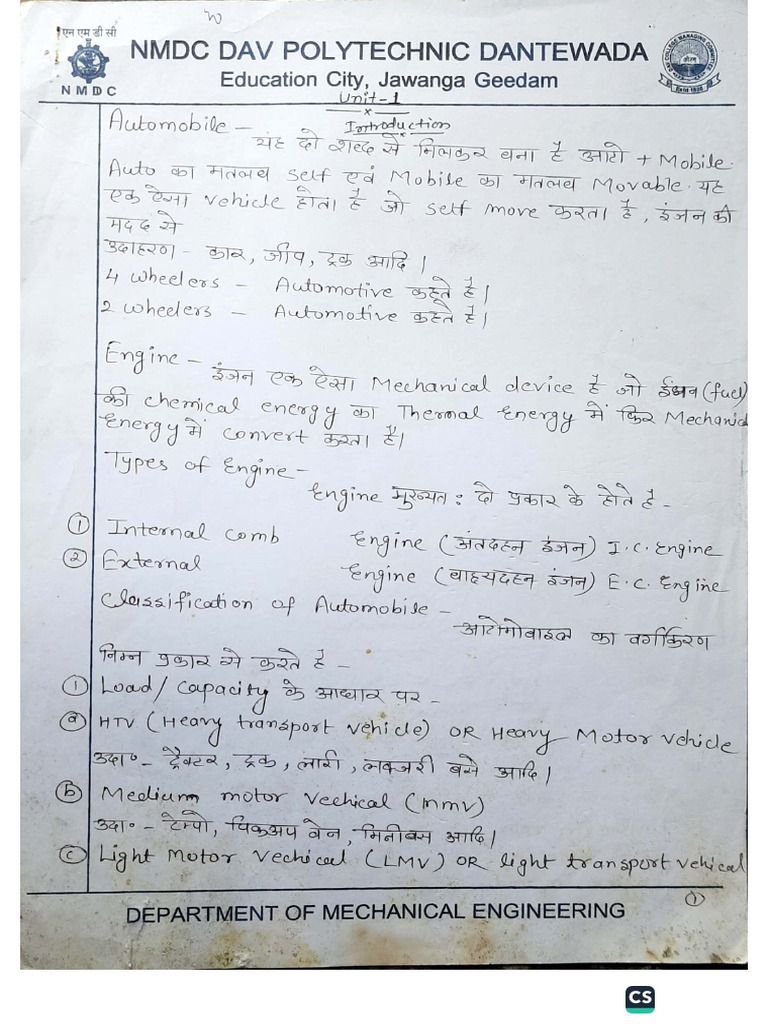 w
एन एम डी सी
NMDC
NMDC DAV POLYTECHNIC DANTEWADA
Education City, Jawanga Geedam
Unit-1
Introduction
Automobile -
यह दो शब्द से मिलकर बना है आटो + Mobile.
Auto का मतलब self एवं Mobile का मतलब Movable. यह
एक ऐसा vehicle होता है जो self move करता है, इंजन की
मदद से
उदाहरण - कार, जीप, ट्रक आदि।
4 wheelers - Automotive कहते है।
2 wheelers - Automotive कहते है।
Engine -
इंजन एक ऐसा Mechanical device है जो ईंधन (fuel)
की chemical energy का Thermal Energy में फिर Mechanical
Energy में convert करता है।
Types of Engine -
Engine मुख्यत: दो प्रकार के होते है -
① Internal comb Engine (अंतदहन इंजन) I.C. Engine
② External Engine (बाह्यदहन इंजन) E.C. Engine
Classification of Automobile -
आटोमोबाइल का वर्गीकरण
निम्न प्रकार से करते है -
① Load/Capacity के आधार पर -
ⓐ HTV (Heavy transport vehicle) OR Heavy Motor vehicle
उदा० - ट्रैक्टर, ट्रक, लारी, लक्जरी बसे आदि।
ⓑ Medium motor Vechical (mmv)
उदा० - टेम्पो, पिकअप वेन, मिनीबस आदि।
ⓒ Light Motor Vechical (LMV) OR light transport vehical
①
DEPARTMENT OF MECHANICAL ENGINEERING
CS